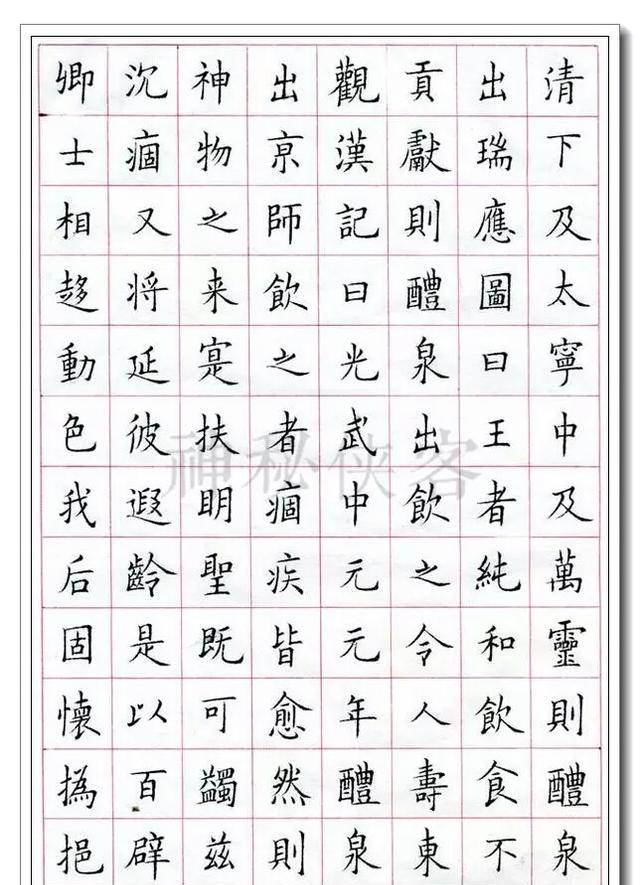 清下及太寧中及萬靈則醴泉
出瑞應圖曰王者純和飲食不
貢獻則醴泉出飲之令人壽東
觀漢記曰光武中元元年醴泉
出京師飲之者痼疾皆愈然則
神物之来寔扶明聖既可蠲兹
沉痼又将延彼遐齡是以百辟
卿士相趍動色我后固懷撝挹
神秘侠客